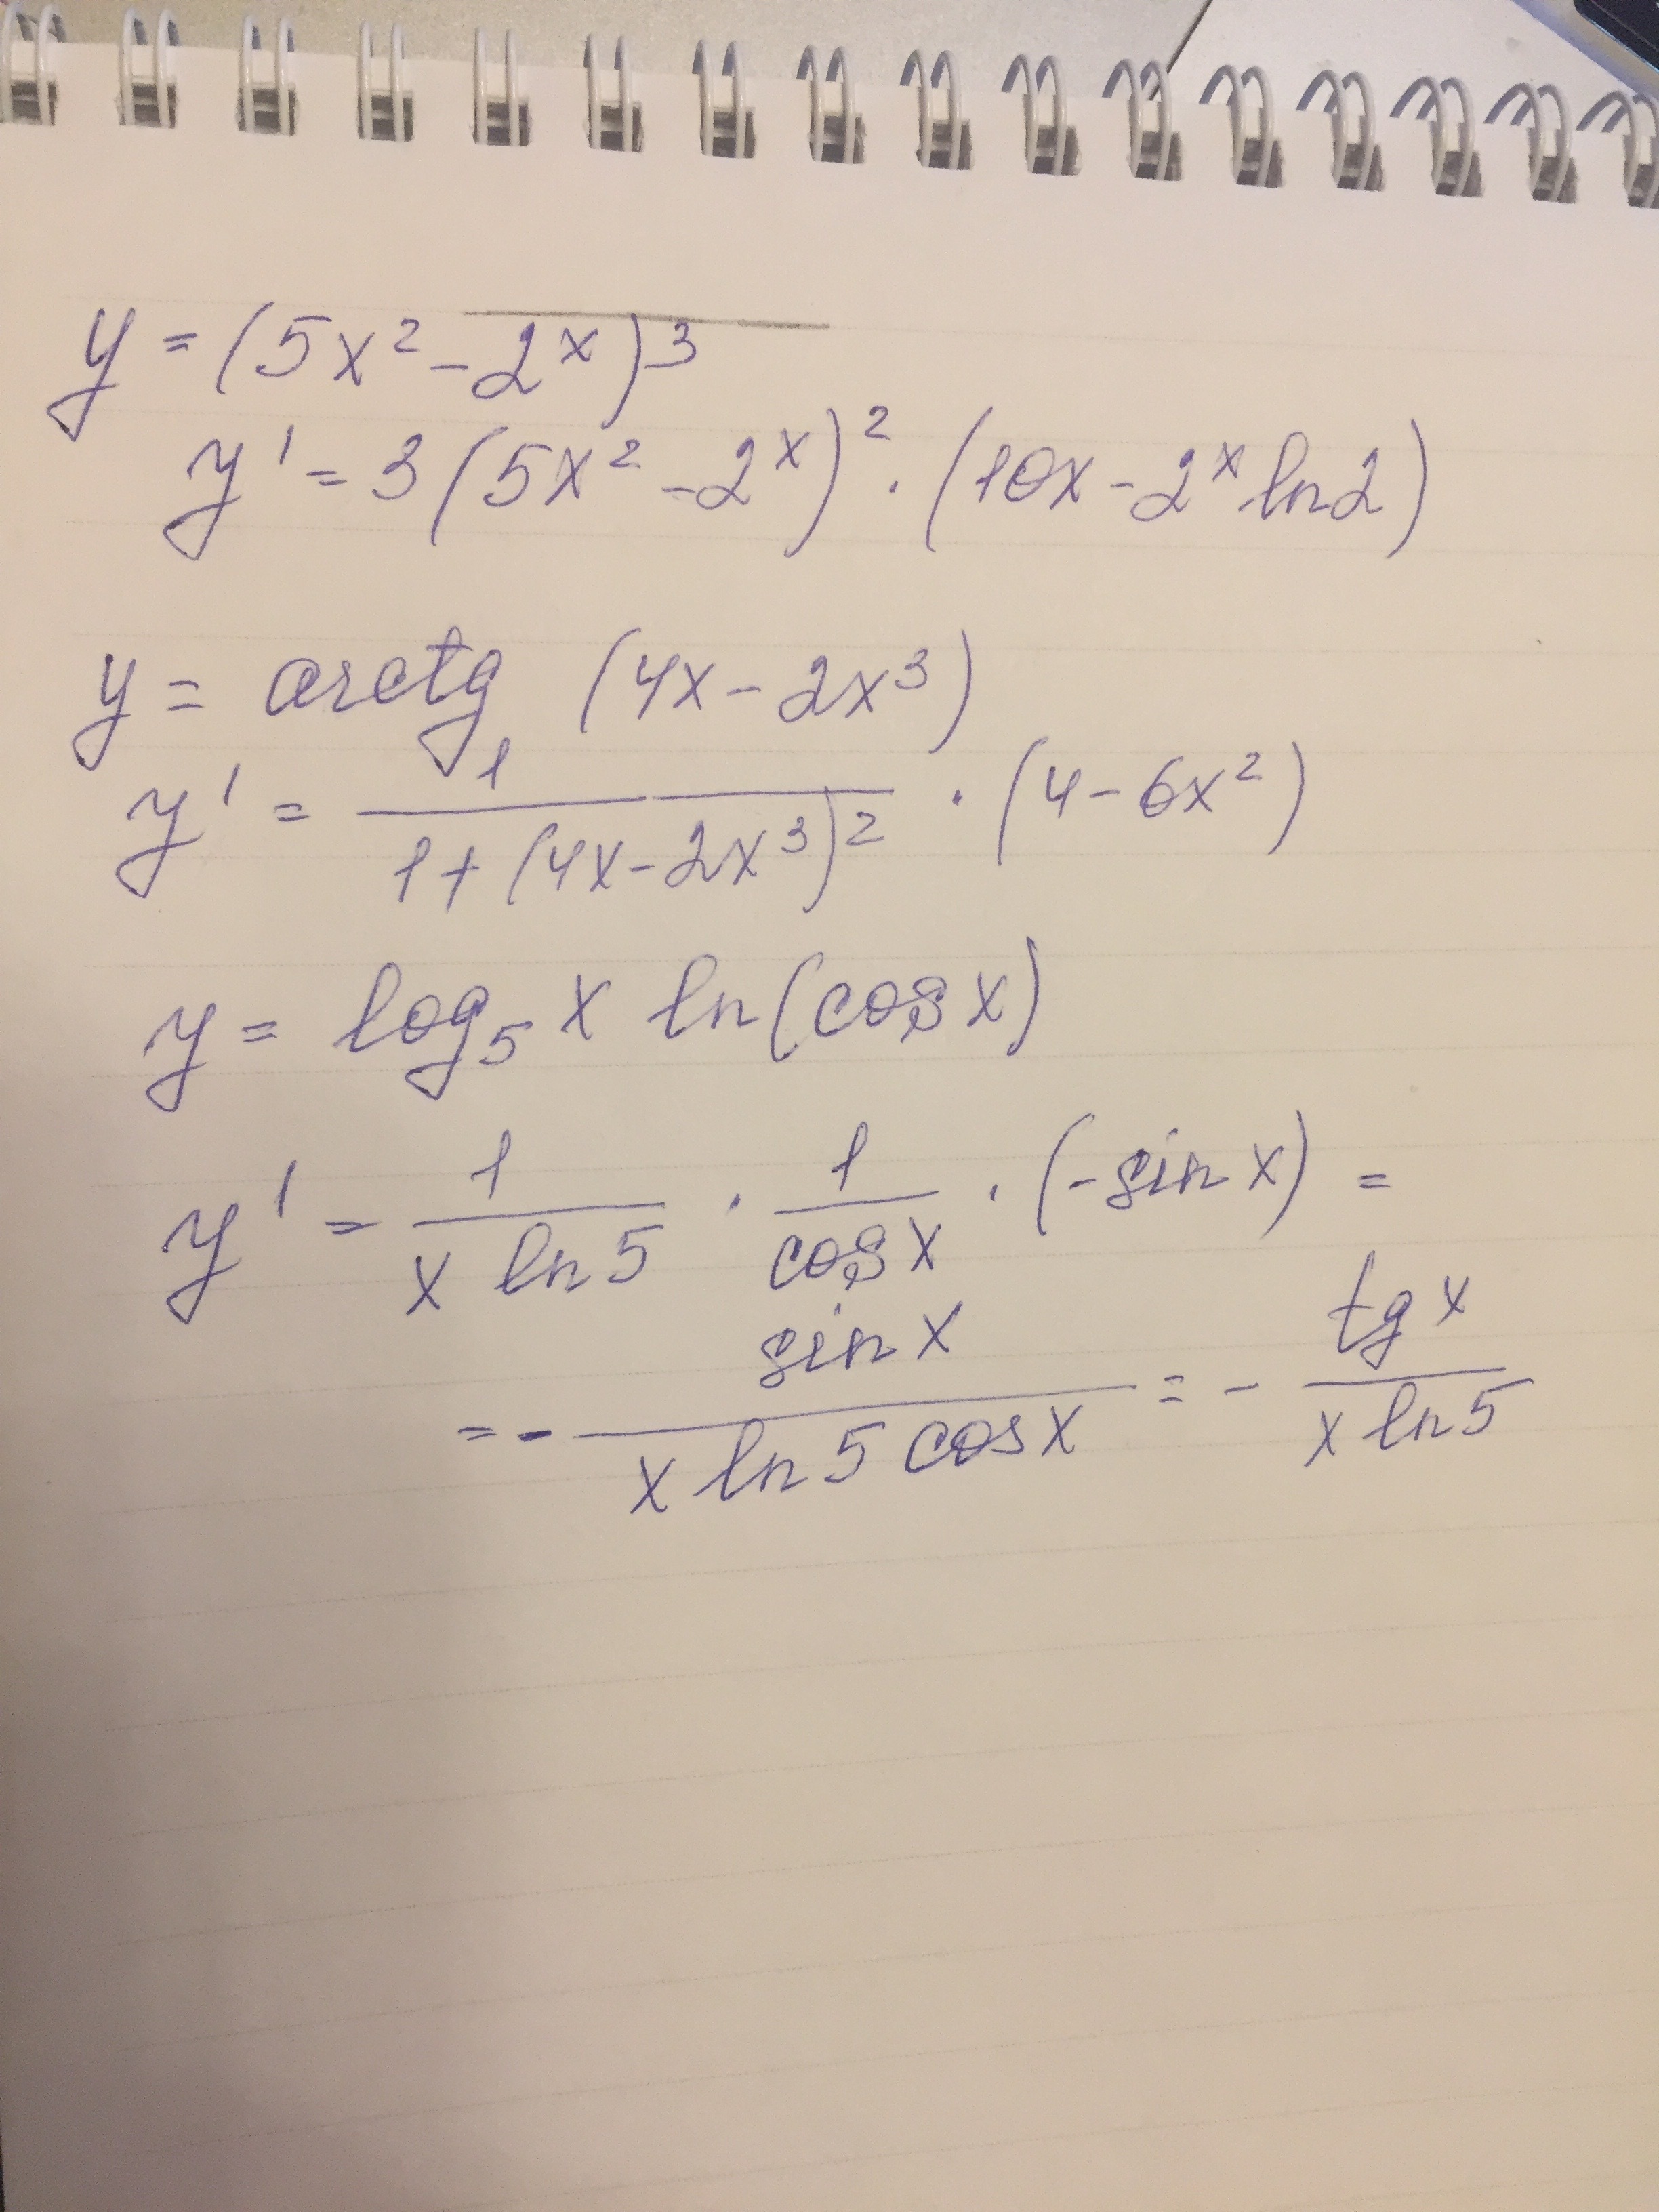 y = (5x² - 2ˣ)³
y' = 3(5x² - 2ˣ)² · (10x - 2ˣ ln2)
y = arctg (4x - 2x³)
y' = 1 / (1 + (4x - 2x³)²) · (4 - 6x²)
y = log₅ x ln(cos x)
y' = 1 / (x ln 5) · 1 / (cos x) · (-sin x) =
= - sin x / (x ln 5 cos x) = - tg x / (x ln 5)